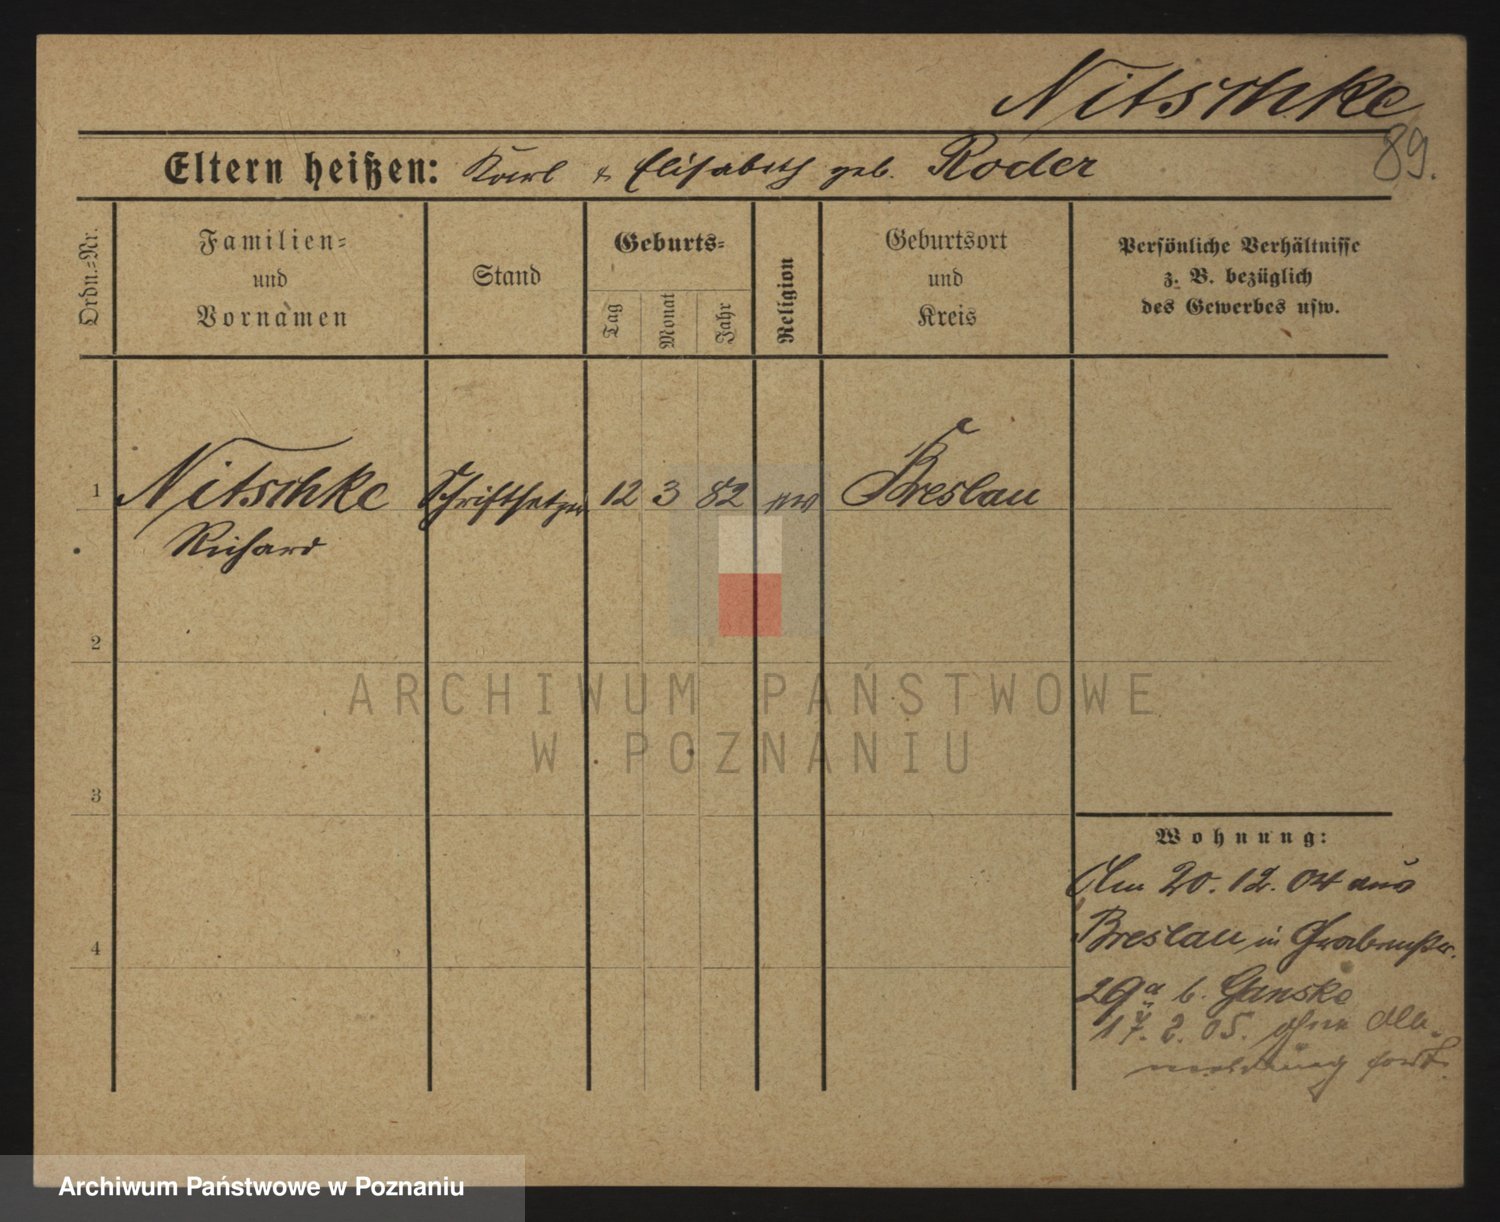 Nitschke
89.
Eltern heißen: Karl & Elisabeth geb. Roder
Ordn.-Nr.
Familien-
und
Vornamen
Stand
Geburts-
Tag
Monat
Jahr
Religion
Geburtsort
und
Kreis
Persönliche Verhältnisse
z. B. bezüglich
des Gewerbes usw.
1 Nitschke Schriftsetzer 12 3 82 ew Breslau
Richard
2
ARCHIWUM PAŃSTWOWE
W POZNANIU
3
Wohnung:
Am 20.12.04 aus
Breslau in
4
29a b. Ganske
17.2.05. ohne Ab-
meldung fort.
Archiwum Państwowe w Poznaniu